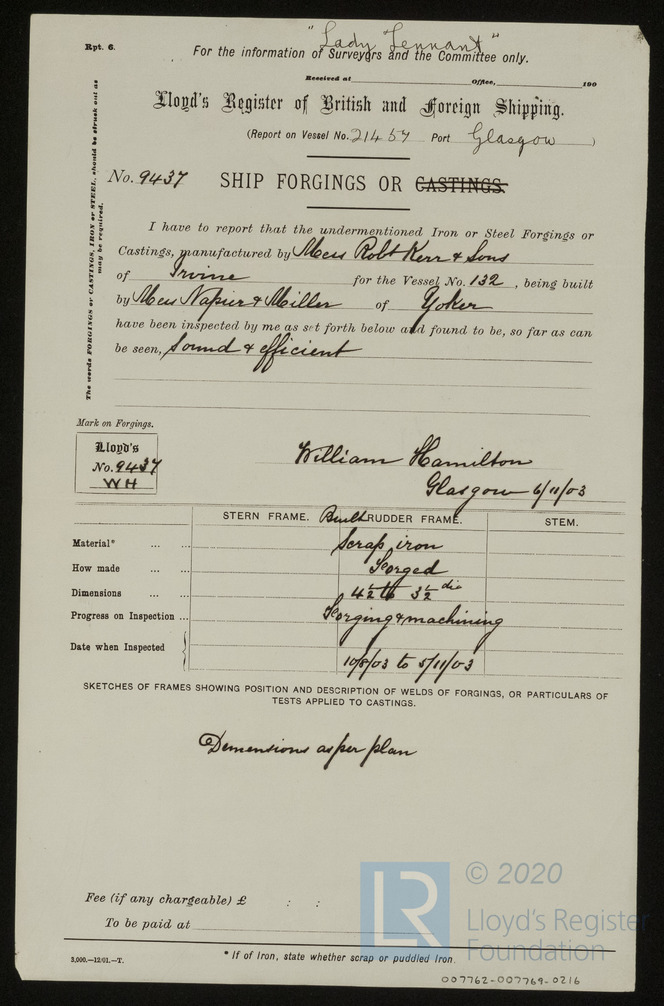 "Lady Tennant"
Rpt. 6.
For the information of Surveyors and the Committee only.
Received at Office, 190
Lloyd's Register of British and Foreign Shipping.
(Report on Vessel No. 21457 Port Glasgow )
No. 9437 SHIP FORGINGS OR CASTINGS.
The words FORGINGS or CASTINGS, IRON or STEEL, should be struck out as may be required.
I have to report that the undermentioned Iron or Steel Forgings or
Castings, manufactured by Mess Robt Kerr & Sons
of Irvine for the Vessel No. 132, being built
by Mess Napier & Miller of Yoker
have been inspected by me as set forth below and found to be, so far as can
be seen, Sound & efficient
Mark on Forgings.
Lloyd's
No. 9437
WH
William Hamilton
Glasgow 6/11/03
STERN FRAME. Built RUDDER FRAME. STEM.
Material* ... ... Scrap iron
How made ... ... Forged
Dimensions ... ... 4½ to 3½ dia
Progress on Inspection ... Forging & machining
Date when Inspected 10/8/03 to 5/11/03
SKETCHES OF FRAMES SHOWING POSITION AND DESCRIPTION OF WELDS OF FORGINGS, OR PARTICULARS OF
TESTS APPLIED TO CASTINGS.
Demensions as per plan
Fee (if any chargeable) £ : :
To be paid at
3,000.—12/01.—T.
* If of Iron, state whether scrap or puddled Iron.
LR
© 2020
Lloyd's Register
Foundation
007762-007769-0216